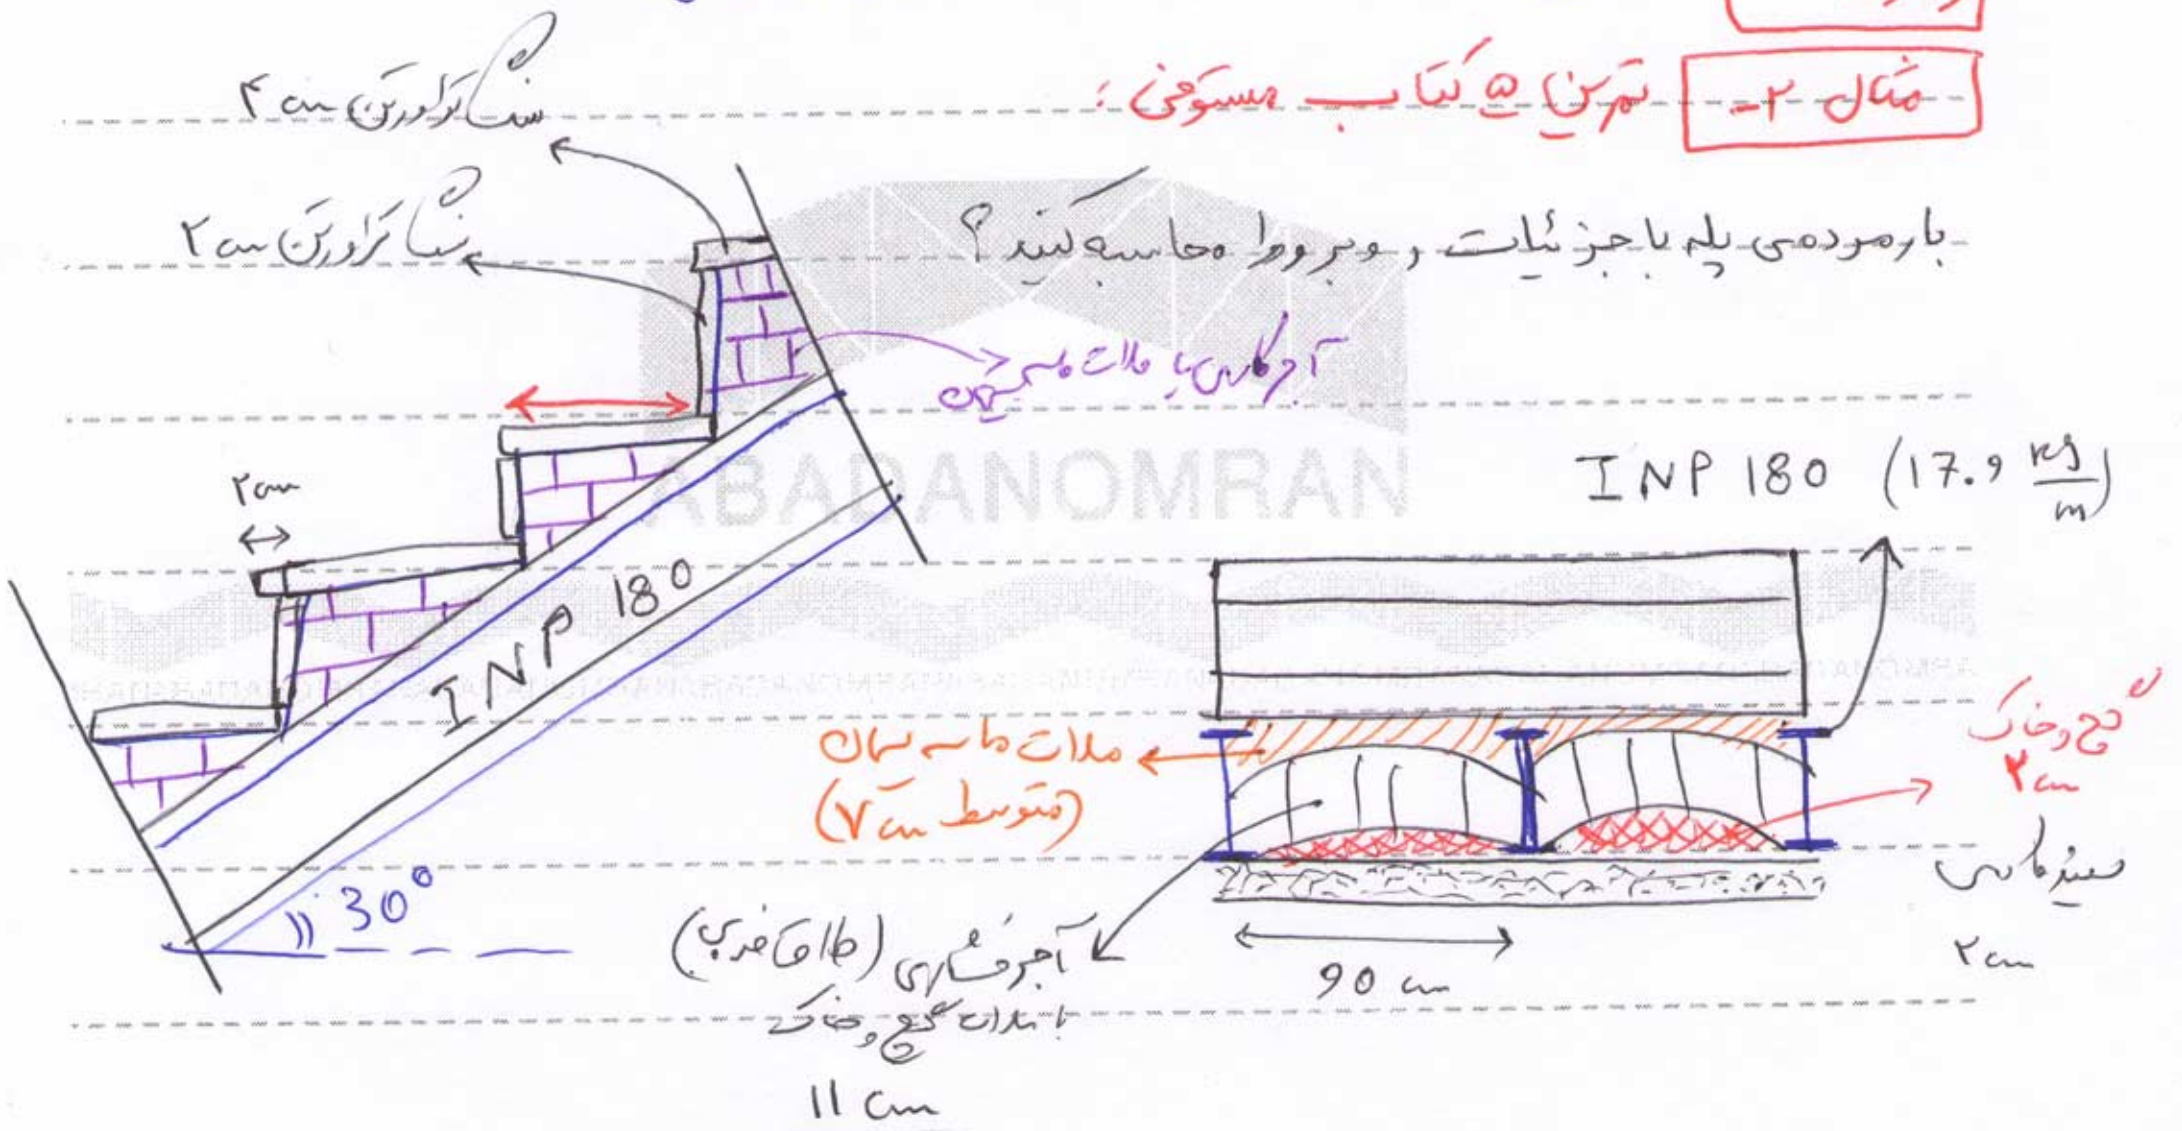 مثال ۲- تمرین ۵ کتاب مستوفی :
بار مرده‌ی پله با جزئیات روبرو را محاسبه کنید؟
سنگ تراورتن ۴ cm
سنگ تراورتن ۲ cm
آجرکاری با ملات ماسه سیمان
۲cm
INP 180
30°
ABADANOMRAN
INP 180 (17.9 kg/m)
ملات ماسه سیمان
(متوسط ۷cm)
گچ و خاک
۳cm
سفیدکاری
۲cm
90 cm
آجر فشاری (طاق ضربی)
با ملات گچ و خاک
11 cm